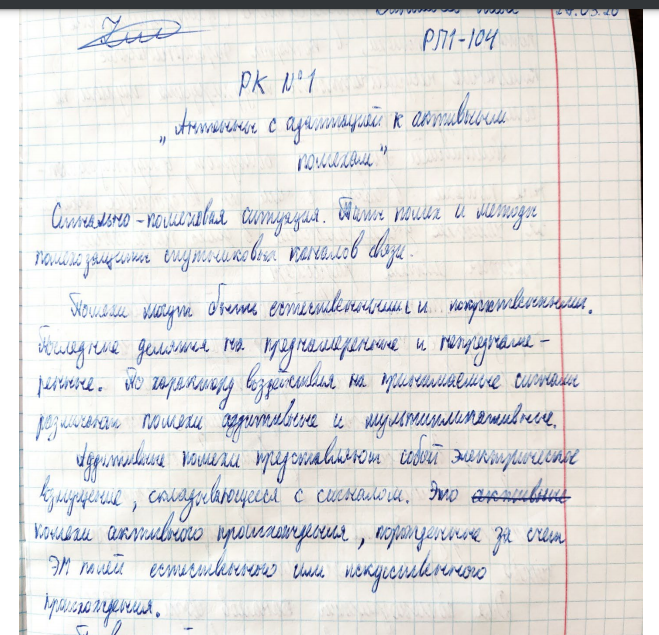 24.03.20
РЛ1-104
РК №1
„Антенны с адаптацией к активным
помехам"
Сигнально-помеховая ситуация. Типы помех и методы
помехозащиты спутниковых каналов связи.
Помехи могут быть естественными и искусственными.
Последние делятся на преднамеренные и непреднаме-
ренные. По характеру воздействия на принимаемые сигналы
различают помехи аддитивные и мультипликативные.
Аддитивные помехи представляют собой электрическое
возмущение, складывающееся с сигналом. Это активные
помехи активного происхождения, порожденные за счет
ЭМ полей естественного или искусственного
происхождения.